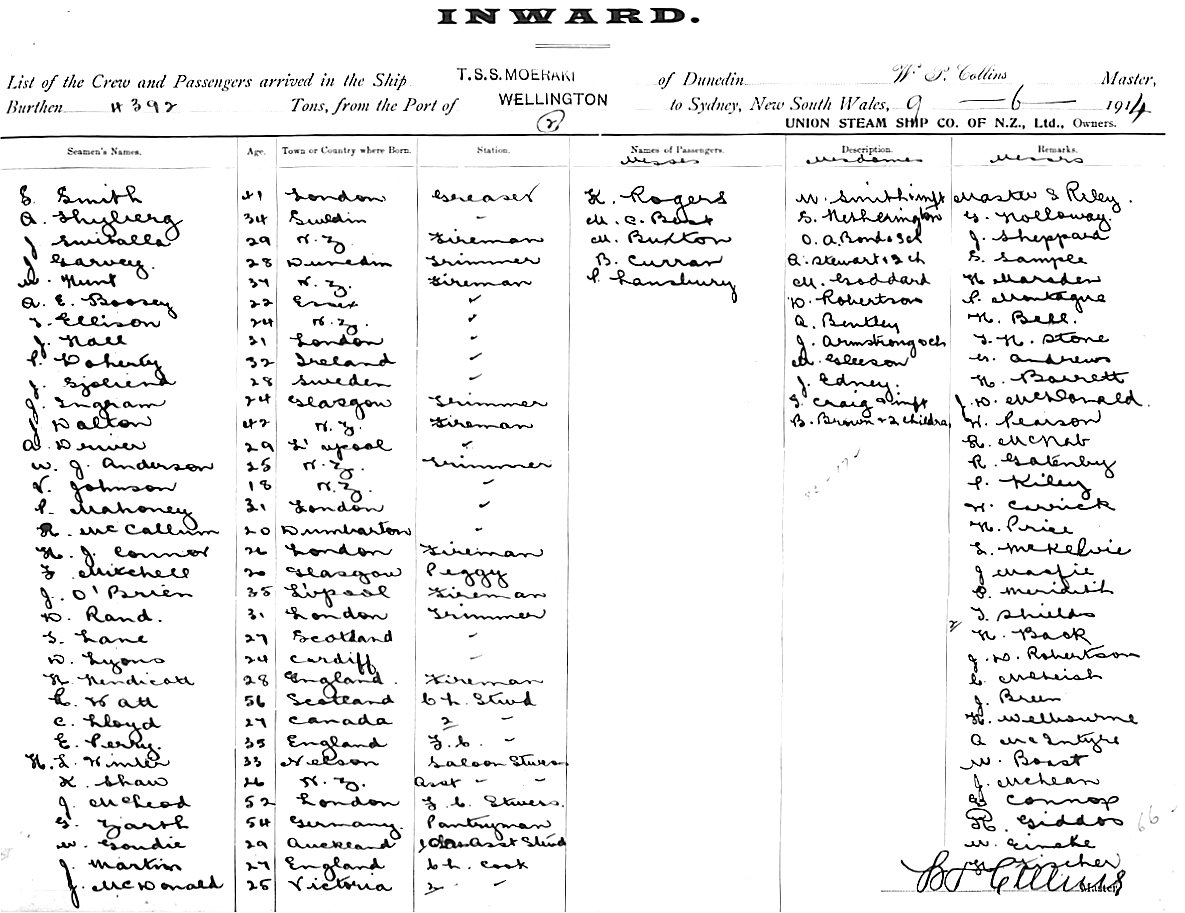 INWARD.
List of the Crew and Passengers arrived in the Ship T.S.S. MOERAKI of Dunedin W. P. Collins Master,
Burthen 4392 Tons, from the Port of WELLINGTON to Sydney, New South Wales, 9 — 6 — 1914
(2) UNION STEAM SHIP CO. OF N.Z., Ltd., Owners.
Seamen's Names. Age. Town or Country where Born. Station. Names of Passengers. Description. Remarks.
Misses Mesdames Messrs
S. Smith 41 London Greaser K. Rogers W. Smith & inft Master S Riley.
A. Thylerg 34 Sweden " M. C. Boat S. Netherington G. Holloway.
J 29 N.Z. Fireman M. Buxton O. A. Bond & 3ch J. Sheppard
J Garvey. 28 Dunedin Trimmer B. Curran A. Stewart & 2ch S. Sample
W. Hunt 37 N.Z. Fireman P. Lansbury M. Goddard H. Marsden
A. E. Boosey 22 Essex " D. Robertson P. Montague
T. Ellison 24 N.Z. " A. Bentley H. Bell.
J. Hall 31 London " J. Armstrong & ch T. H. Stone
P. Doherty 32 Ireland " M. Gleeson G. Andrews
J. 28 Sweden " J. Edney. H. Barrett
J. Ingram 24 Glasgow Trimmer S. Craig & inft J. D. McDonald.
J Dalton 42 N.Z. Fireman B. Brown & 2 children H. Pearson
A. Driver 29 L'pool " R. McNab
W. J. Anderson 25 N.Z. Trimmer R. Gatenby
V. Johnson 18 N.Z. " P. Kiley
P. Mahoney 31 London " W. Carrick
R. McCallum 20 Dumbarton " H. Price
H. J. Connor 26 London Fireman L. McKelvie
F. Mitchell 20 Glasgow Peggy J
J. O'Brien 35 L'pool Fireman Meridith
D. Rand. 31 London Trimmer T. Shields
S. Lane 27 Scotland " H. Back
D. Lyons 24 Cardiff " J. D. Robertson
H. Hendicott 28 England. Fireman C. McLeish
R. Watt 56 Scotland Ch. Stwd J. Breen
C. Lloyd 27 Canada 2 " H. Welbourne
E. Perry. 35 England F. C. " A McIntyre
H. L. Winter 33 Nelson Saloon Stwrs W. Boast
K. Shaw 26 N.Z. Asst " " J. McLean
J. McLeod 52 London F. C. Stwrs. Connop
G. Zarth 54 Germany. Pantryman H. Giddos 66
W. Goudie 29 Auckland Asst Stwd W.
J. Martin 27 England Ch. Cook Fischer
J. McDonald 25 Victoria 2 " W P Collins Master